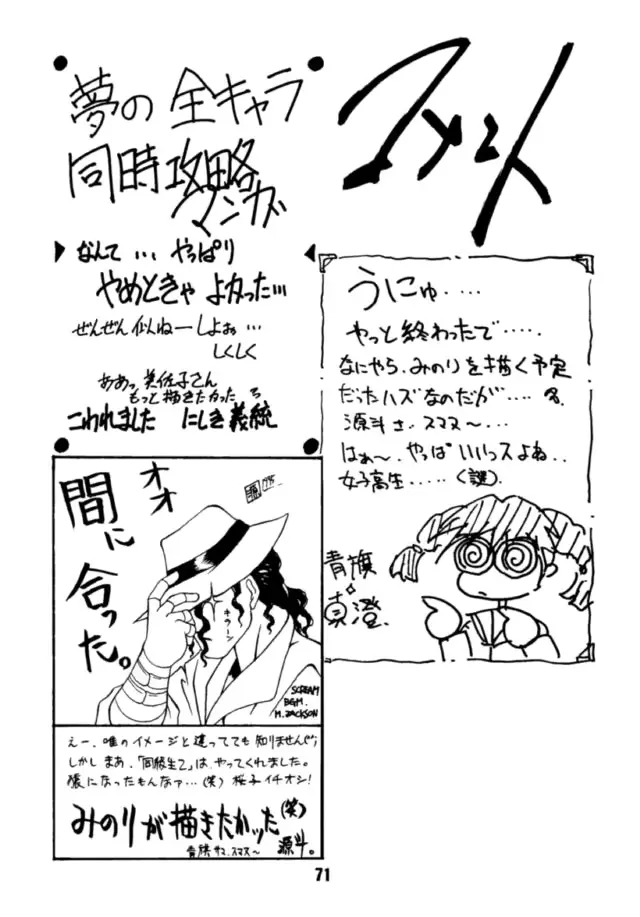 コメント
夢の 全キャラ
同時攻略
マンガ
なんて… やっぱり
やめときゃ よかった…
ぜんぜん 似ねーしよぉ…
しくしく
ああっ 美佐子さん
もっと描きたかった
こわれました にしき義統
うにゅ‥‥
やっと終わったで‥‥‥
なにやら、みのりを描く予定
だったハズなのだが‥‥
源斗さ、スマヌ〜‥‥
はぁ〜、やっぱ いいっスよね‥
女子高生‥‥‥(謎).
青旗
真澄
オオ
間に
合った。
キラーン
SCREAM
BGM.
M.JACKSON
えー、唯のイメージと違ってても知りませんぜ;
しかしまあ、「同級生2」は、やってくれました。
(笑) 桜子イチオシ!
みのりが描きたかッた(笑)
青旗サマ、スマヌ〜 源斗。
71